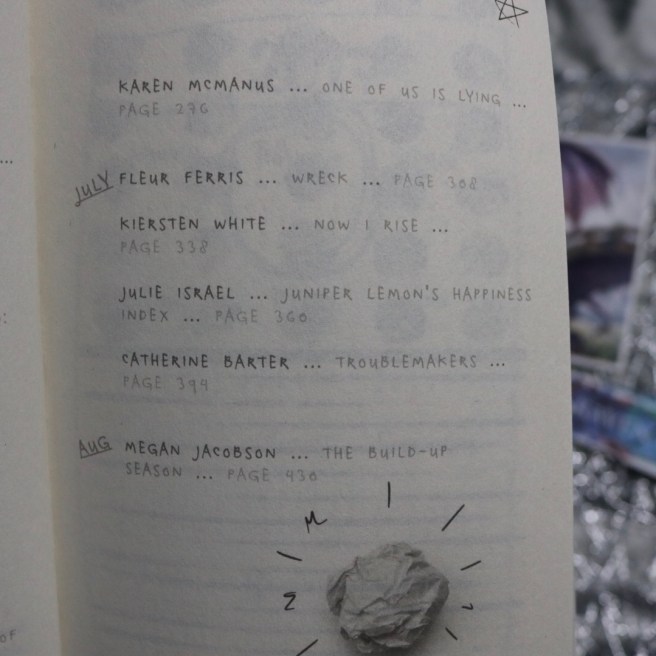 KAREN MCMANUS ... ONE OF US IS LYING ...
PAGE 276
JULY
FLEUR FERRIS ... WRECK ... PAGE 308
KIERSTEN WHITE ... NOW I RISE ...
PAGE 338
JULIE ISRAEL ... JUNIPER LEMON'S HAPPINESS
INDEX ... PAGE 360
CATHERINE BARTER ... TROUBLEMAKERS ...
PAGE 394
AUG
MEGAN JACOBSON ... THE BUILD-UP
SEASON ... PAGE 430
OF